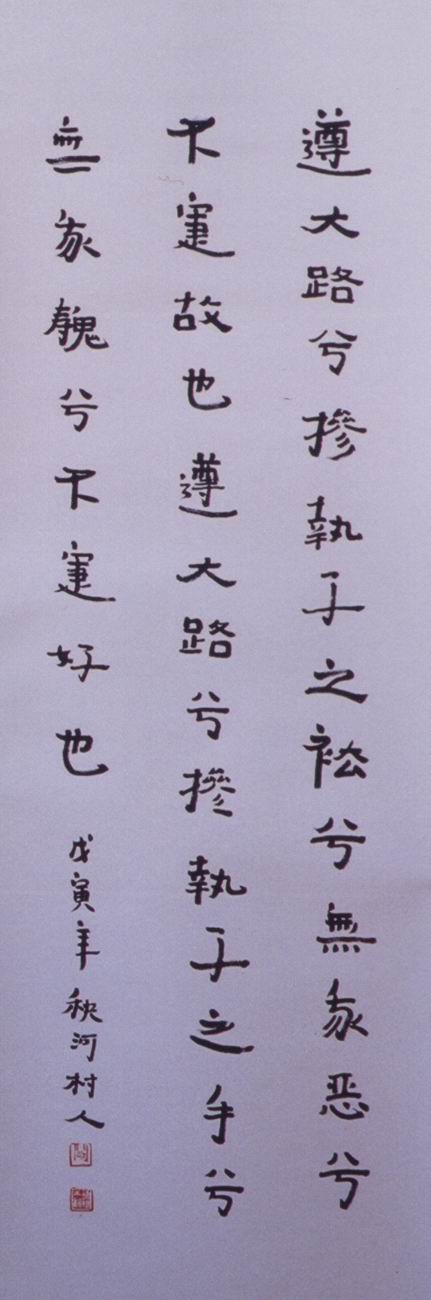 遵大路兮摻執子之袪兮無我恶兮
不寁故也遵大路兮摻執子之手兮
無我魗兮不寁好也
戊寅年秋河村人